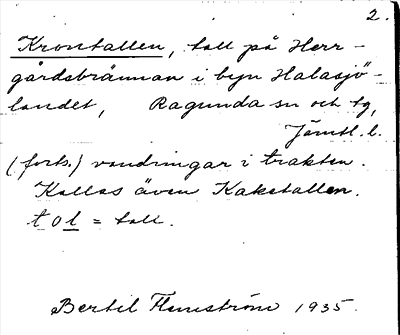 2.
Krontallen, tall på Herr-
gårdsbrännan i byn Halasjö-
landet, Ragunda sn och tg,
Jämtl. l.
(forts.) vandringar i trakten.
Kallas även Kaketallen.
t o l = tall.
Bertil Flemström 1935.